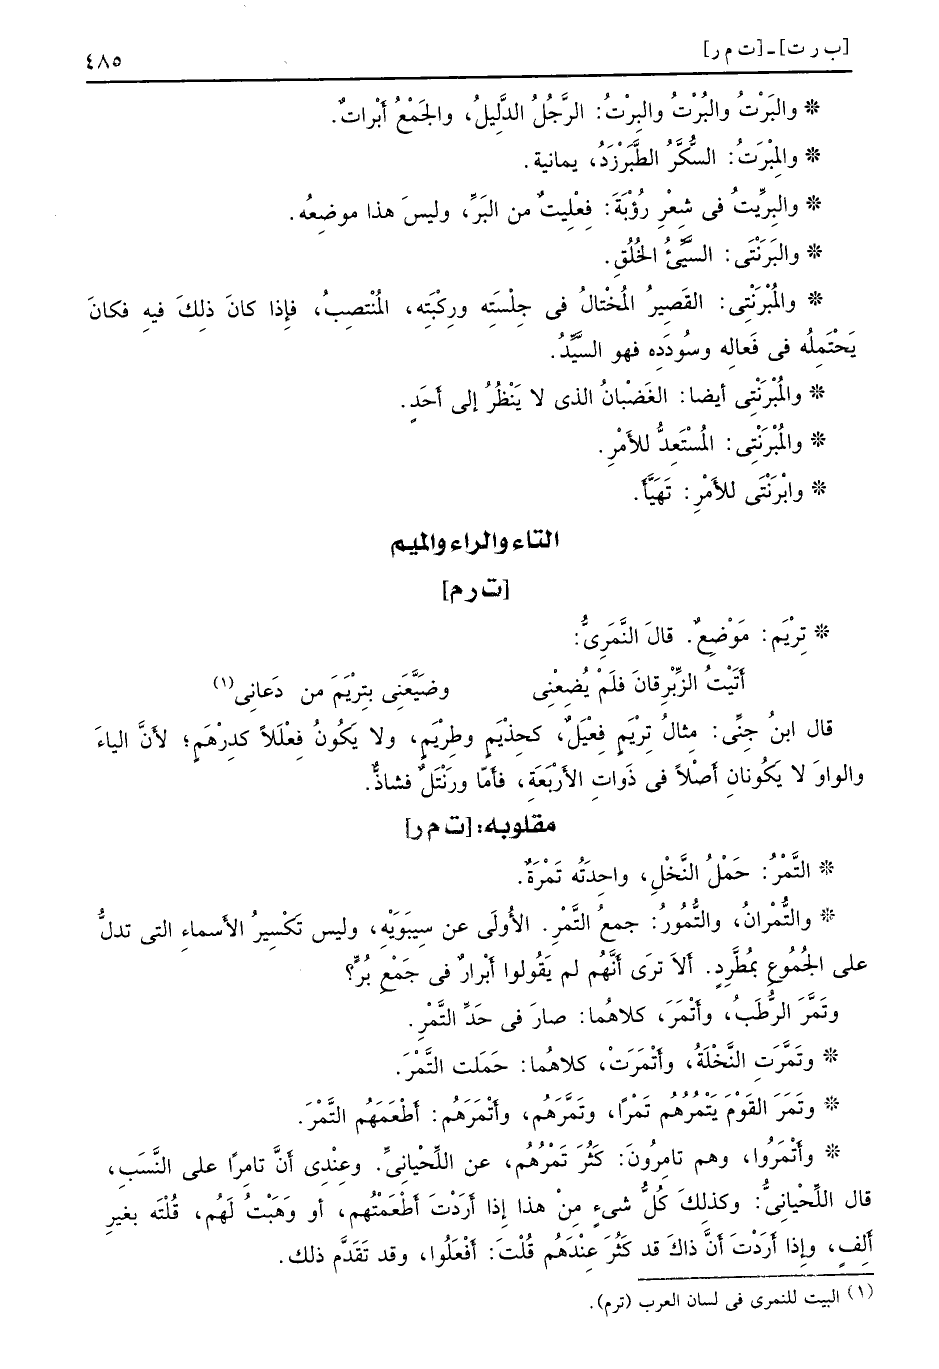 [ب ر ت] ـ [ت م ر] ٤٨٥
* والبَرْتُ والبُرْتُ والبِرْتُ: الرَّجُلُ الدَّليلُ، والجَمْعُ أبْراتٌ.
* والمِبْرَتُ: السُّكَّرُ الطَّبَرْزَدُ، يمانية.
* والبِرِّيتُ فى شِعْرِ رُؤْبَةَ: فِعْلِيتٌ من البَرِّ، وليسَ هذا موضعِعُه.
* والبَرَنْتَى: السَّيِّئُ الخُلُقِ.
* والمُبْرَنْتِى: القَصيرُ المُخْتالُ فى جِلْسَتِه ورِكْبَتِه، المُنْتصِبُ، فإذا كانَ ذلِكَ فيه فكانَ
يَحْتَمِلُه فى فَعاله وسُودَدِه فهو السَّيِّدُ.
* والمُبْرَنْتِى أيضا: الغَضْبانُ الذى لا يَنْظُرُ إلى أحَدٍ.
* والمُبْرَنْتِى: المُسْتَعِدُّ للأمْرِ.
* وابْرَنْتَى للأمْرِ: تَهَيَّأَ.
التاء والراء والميم
[ت ر م]
* تِرْيَم: مَوْضِعٌ. قالَ النَّمَرِىُّ:
أتَيْتُ الزِّبْرِقانَ فلَمْ يُضِعْنِى وضَيَّعَنِى بتِرْيَمَ من دَعانِى(١)
قال ابنُ جِنِّى: مِثالُ تِرْيَمٍ فِعْيَلٌ، كحِذْيَمٍ وطِرْيَمٍ، ولا يَكُونُ فِعْلَلاً كدِرْهَمٍ؛ لأنَّ الياءَ
والواوَ لا يَكُونانِ أصْلاً فى ذَواتِ الأرْبَعَةِ، فأمّا ورَنْتَلٌ فشاذٌّ.
مقلوبه: [ت م ر]
* التَّمْرُ: حَمْلُ النَّخْلِ، واحِدَتُه تَمْرَةٌ.
* والتُّمْرانُ، والتُّمُورُ: جمعُ التَّمْرِ. الأُولَى عن سِيبَوَيْهِ، وليس تَكْسِيرُ الأسماءِ التى تدلُّ
على الجُمُوعِ بمُطَّرِدٍ. ألاَ ترَى أنَّهُم لم يَقُولوا أبْرارٌ فى جَمْعِ بُرٍّ؟
وتَمَّرَ الرُّطَبُ، وأتْمَرَ، كلاهُما: صارَ فى حَدِّ التَّمْرِ.
* وتَمَّرَتِ النَّخْلَةُ، وأتْمَرَتْ، كلاهُما: حَمَلت التَّمْرَ.
* وتَمَرَ القَوْمَ يَتْمُرُهُم تَمْرًا، وتَمَّرَهُم، وأتْمَرَهُم: أطْعَمَهُم التَّمْرَ.
* وأتْمَرُوا، وهم تامِرُونَ: كَثُرَ تَمْرُهُم، عن اللِّحيانِىِّ. وعِنْدِى أنَّ تامِرًا على النَّسَبِ،
قال اللِّحْيانِىُّ: وكذلِكَ كُلُّ شىءٍ مِنْ هذا إذا أرَدْتَ أطْعَمْتُهم، أو وَهَبْتُ لَهُم، قُلْتَه بغيرِ
ألِفٍ، وإذا أرَدْتَ أنَّ ذاكَ قد كَثُرَ عِنْدَهُم قُلْتَ: أفْعَلُوا، وقد تَقَدَّم ذلك.
(١) البيت للنمرى فى لسان العرب (ترم).